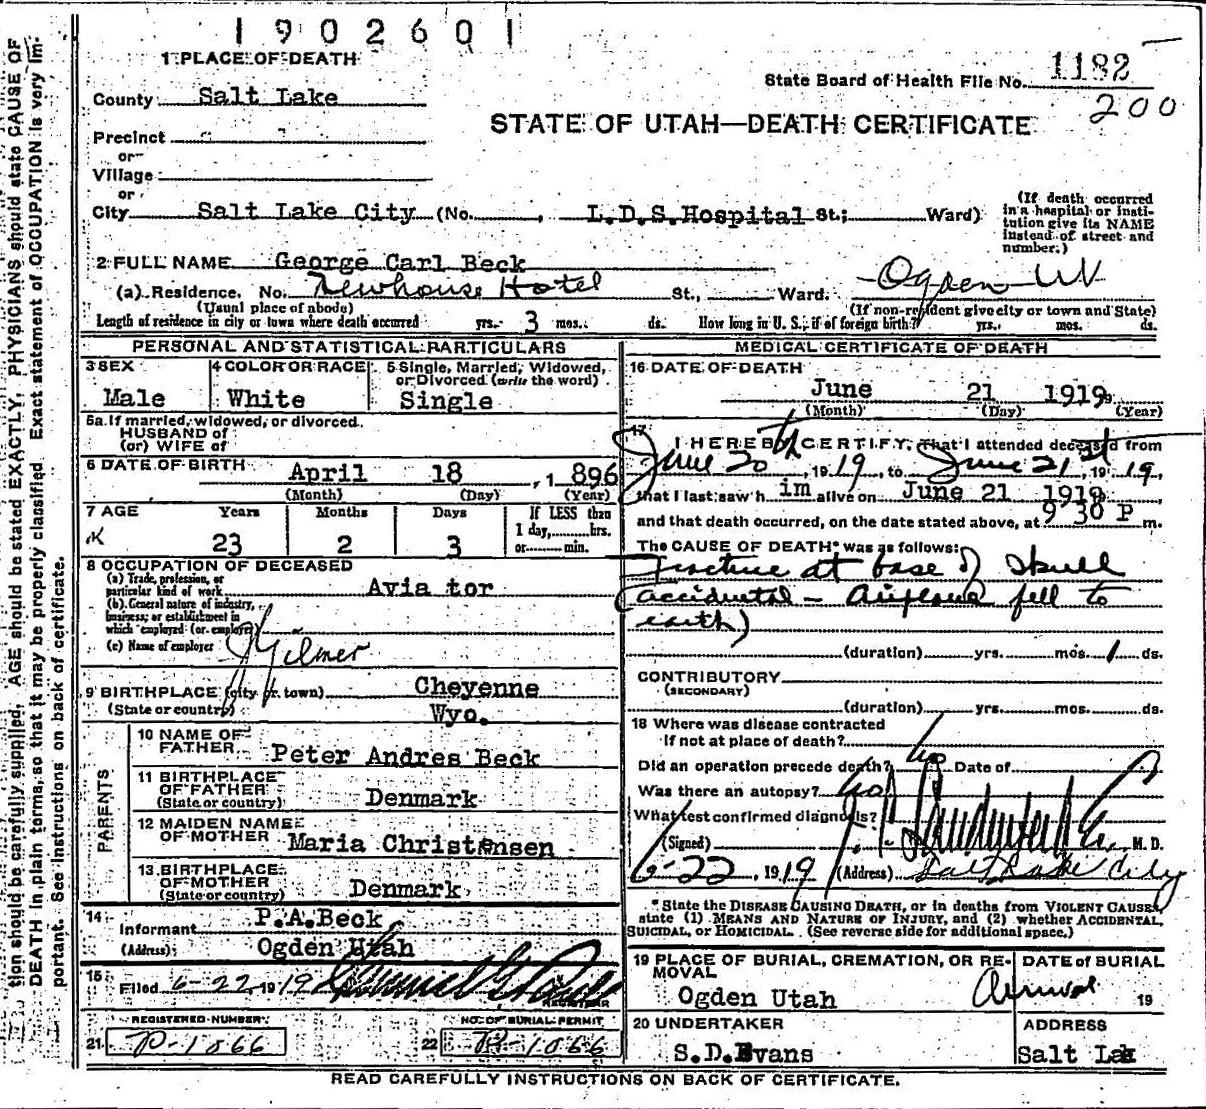 1902601
1 PLACE OF DEATH
State Board of Health File No. 1182
200
County Salt Lake
STATE OF UTAH—DEATH CERTIFICATE
Precinct
or
Village
or
City Salt Lake City (No. , L.D.S.Hospital St.; Ward)
(If death occurred in a hospital or institution give its NAME instead of street and number.)
2 FULL NAME George Carl Beck
(a) Residence. No. Newhouse Hotel St., Ward. Ogden
(Usual place of abode) (If non-resident give city or town and State)
Length of residence in city or town where death occurred yrs. 3 mos. ds. How long in U. S., if of foreign birth? yrs. mos. ds.
PERSONAL AND STATISTICAL PARTICULARS
3 SEX
Male
4 COLOR OR RACE
White
5 Single, Married, Widowed, or Divorced (write the word)
Single
5a If married, widowed, or divorced
HUSBAND of
(or) WIFE of
6 DATE OF BIRTH April 18, 1896
(Month) (Day) (Year)
7 AGE Years Months Days If LESS than
1 day, hrs.
or min.
K 23 2 3
8 OCCUPATION OF DECEASED
(a) Trade, profession, or
particular kind of work Avia tor
(b) General nature of industry,
business, or establishment in
which employed (or employer)
(c) Name of employer Gilmer
9 BIRTHPLACE (city or town) Cheyenne
(State or country) Wyo.
PARENTS
10 NAME OF
FATHER Peter Andres Beck
11 BIRTHPLACE
OF FATHER
(State or country) Denmark
12 MAIDEN NAME
OF MOTHER Maria Christensen
13 BIRTHPLACE
OF MOTHER
(State or country) Denmark
14
Informant P.A.Beck
(Address) Ogden Utah
15
Filed 6-22, 1919
REGISTRAR
REGISTERED NUMBER NO. OF BURIAL PERMIT
21 P-1866 22 P-1866
MEDICAL CERTIFICATE OF DEATH
16 DATE OF DEATH
June 21 1919
(Month) (Day) (Year)
17
I HEREBY CERTIFY, That I attended deceased from
June 20th, 1919, to June 21st, 1919,
that I last saw him alive on June 21 1919,
and that death occurred, on the date stated above, at 9 30 P m.
The CAUSE OF DEATH* was as follows:
Fracture at base of skull
(accidental - airplane fell to
earth)
(duration) yrs. mos. 1 ds.
CONTRIBUTORY
(SECONDARY)
(duration) yrs. mos. ds.
18 Where was disease contracted
If not at place of death?
Did an operation precede death? no Date of
Was there an autopsy? no
What test confirmed diagnosis?
(Signed) M. D.
6-22, 1919 (Address) Salt Lake City
*State the DISEASE CAUSING DEATH, or in deaths from VIOLENT CAUSES,
state (1) MEANS AND NATURE OF INJURY, and (2) whether ACCIDENTAL,
SUICIDAL, or HOMICIDAL. (See reverse side for additional space.)
19 PLACE OF BURIAL, CREMATION, OR REMOVAL
Ogden Utah
DATE of BURIAL
Arrival 19
20 UNDERTAKER
S.D.Evans
ADDRESS
Salt Lak
READ CAREFULLY INSTRUCTIONS ON BACK OF CERTIFICATE.
tion should be carefully supplied. AGE should be stated EXACTLY. PHYSICIANS should state CAUSE OF
DEATH in plain terms, so that it may be properly classified. Exact statement of OCCUPATION is very im-
portant. See instructions on back of certificate.